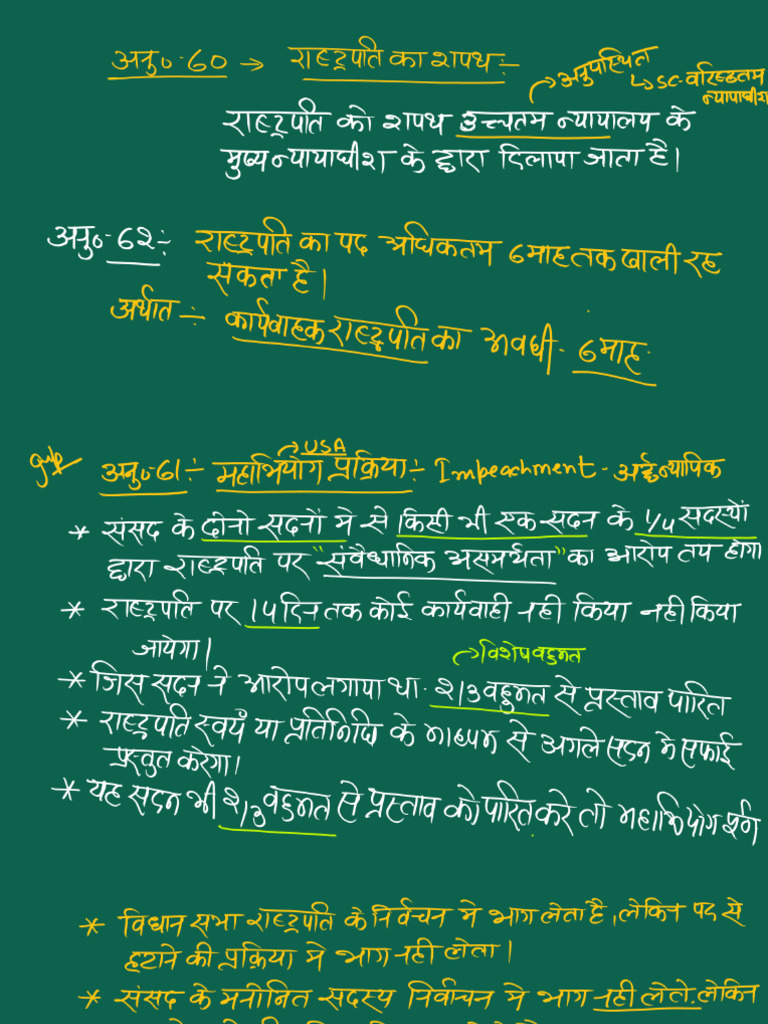 अनु०-60 → राष्ट्रपति का शपथ :-
→ अनुपस्थित
↳ SC-वरिष्ठतम
न्यायाधीश
राष्ट्रपति को शपथ उच्चतम न्यायालय के
मुख्य न्यायाधीश के द्वारा दिलाया जाता है।
अनु०-62 :- राष्ट्रपति का पद अधिकतम 6 माह तक खाली रह
सकता है।
अर्थात :- कार्यवाहक राष्ट्रपति का अवधी - 6 माह.
→ USA
अनु०-61 :- महाभियोग प्रक्रिया :- Impeachment - अर्द्धन्यायिक
* संसद के दोनो सदनों मे से किसी भी एक सदन के 1/4 सदस्यों
द्वारा राष्ट्रपति पर "संवैधानिक असमर्थता" का आरोप तय होगा
* राष्ट्रपति पर 14 दिन तक कोई कार्यवाही नही किया नही किया
जायेगा।
→ विशेष बहुमत
* जिस सदन ने आरोप लगाया था. 2/3 बहुमत से प्रस्ताव पारित
* राष्ट्रपति स्वयं या प्रतिनिधि के माध्यम से अगले सदन मे सफाई
प्रस्तुत करेगा।
* यह सदन भी 2/3 बहुमत से प्रस्ताव को पारित करे तो महाभियोग पूर्ण
* विधान सभा राष्ट्रपति के निर्वाचन मे भाग लेता है, लेकिन पद से
हटाने की प्रक्रिया मे भाग नही लेता।
* संसद के मनोनित सदस्य निर्वाचन मे भाग नही लेते. लेकिन